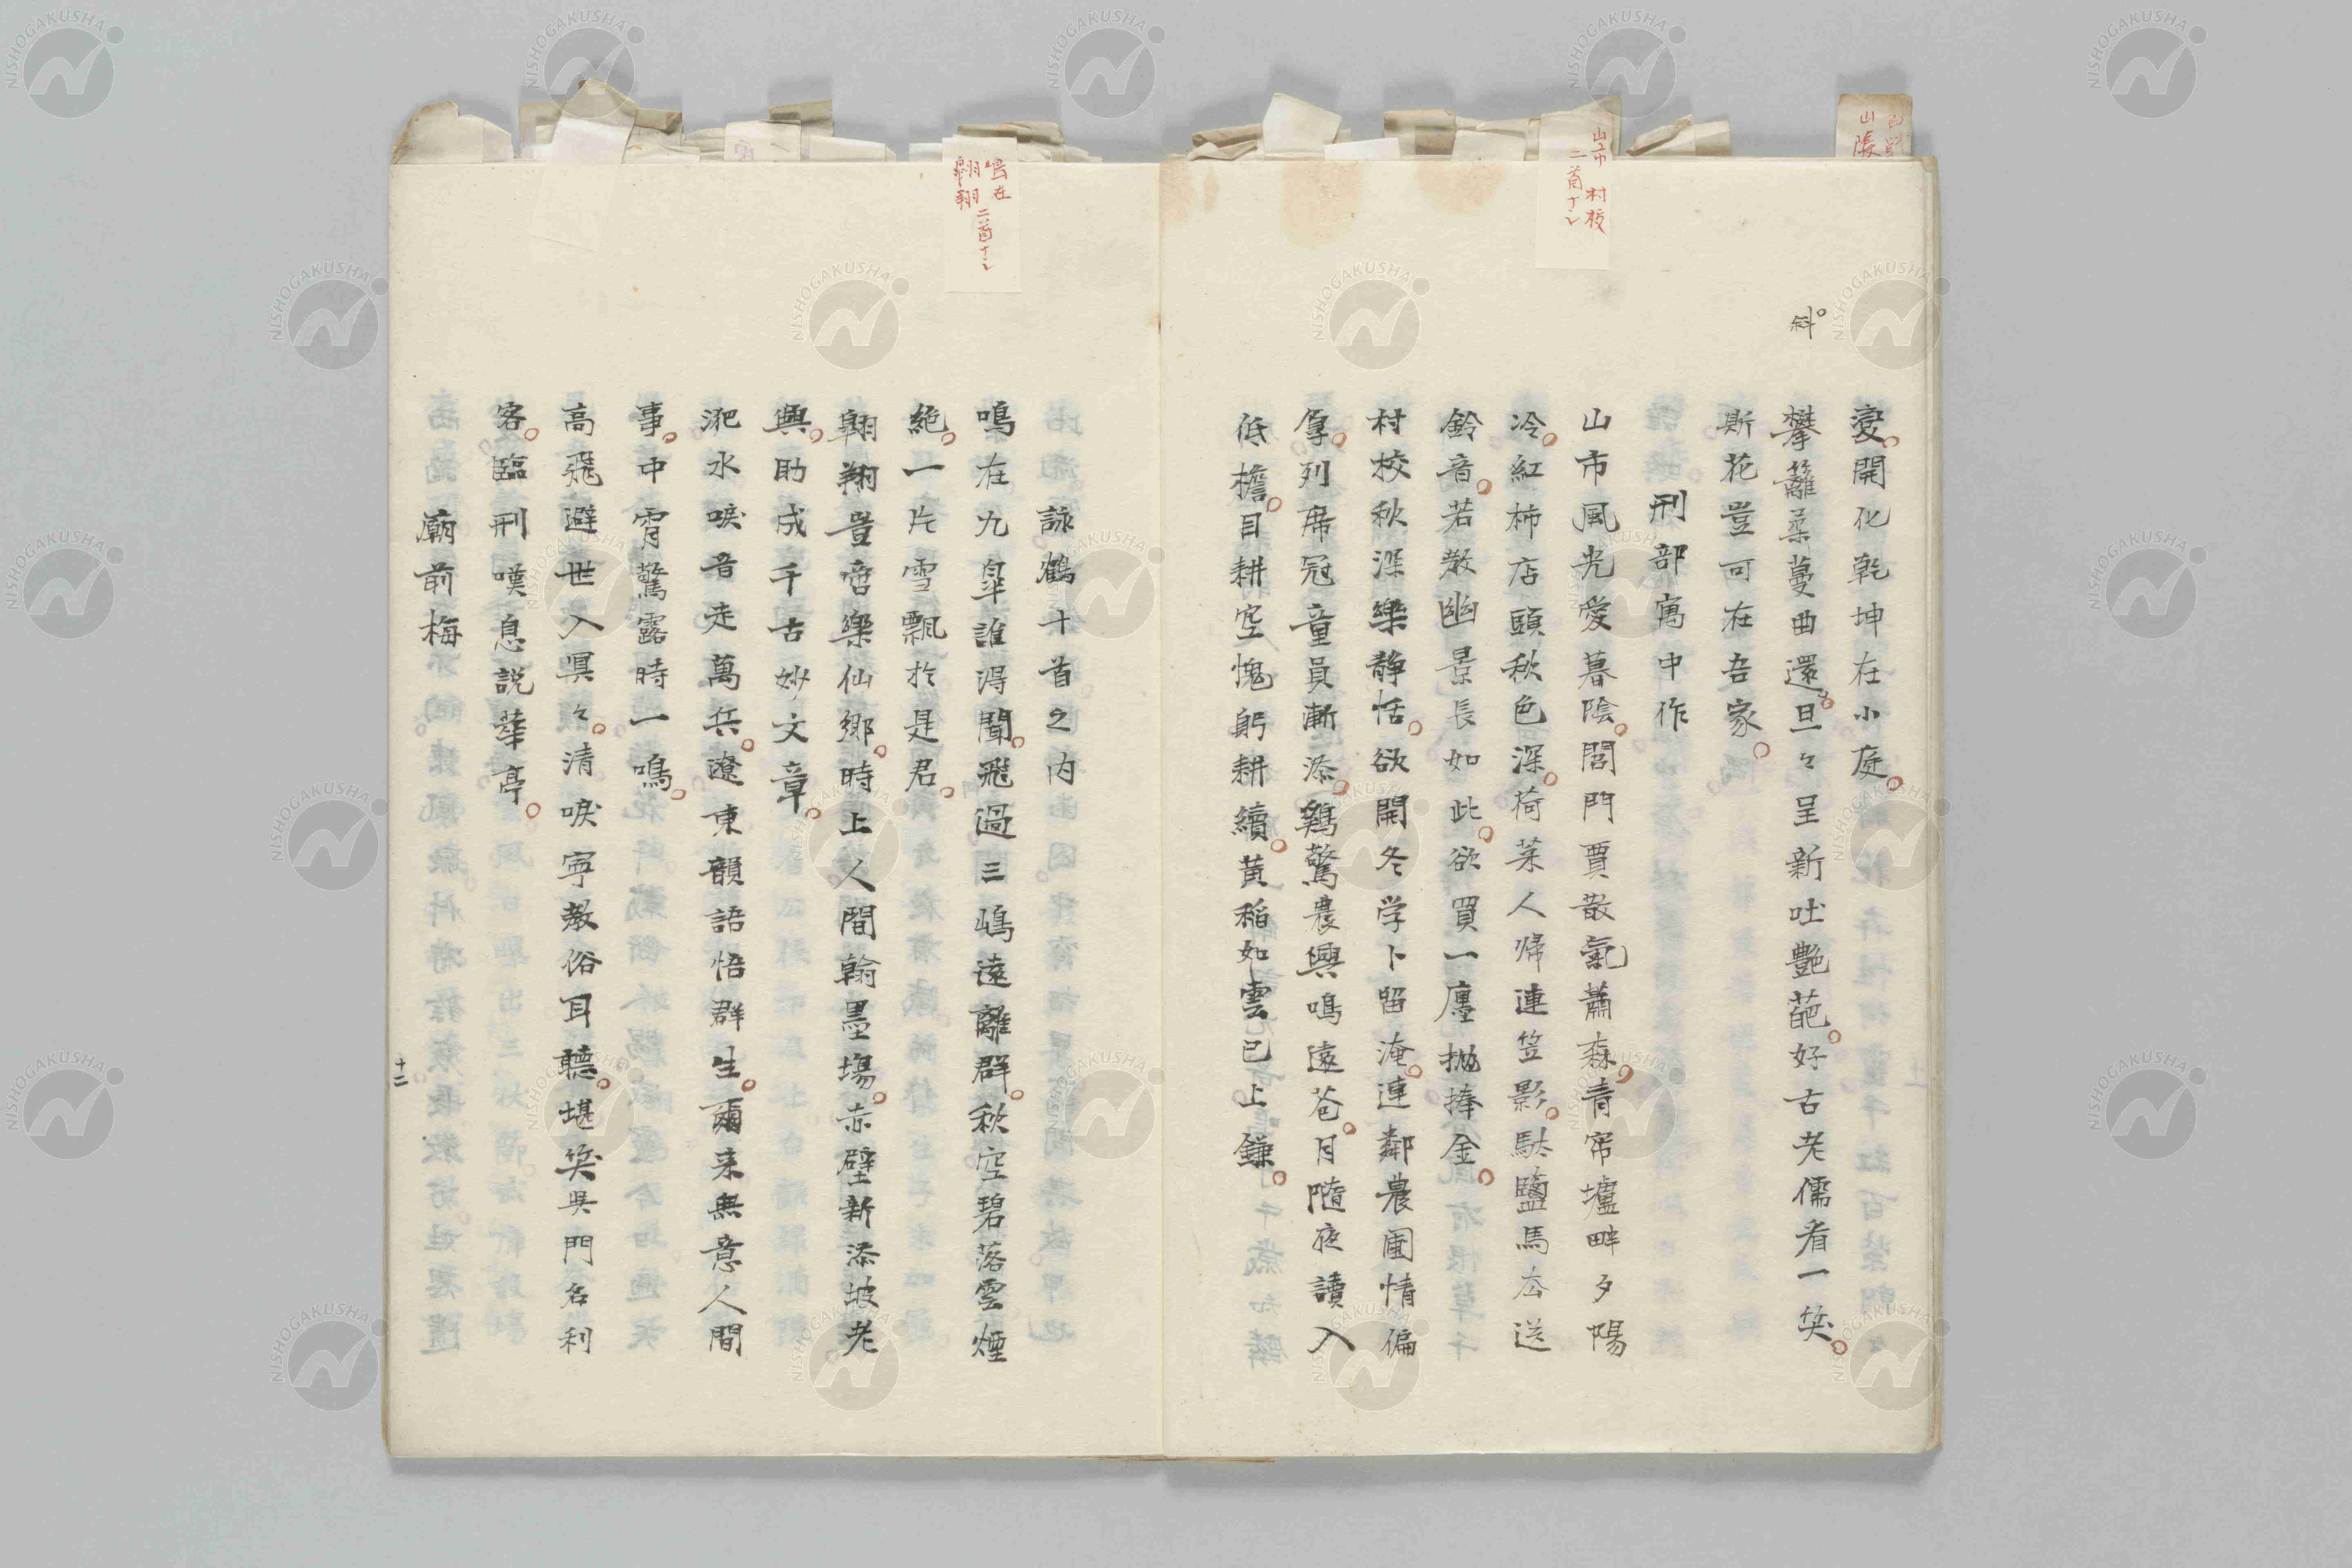 山張
鳴在
翺翔
二首十ニ
山市 村校
二首十ニ
斜
変開化乾坤在小庭
攀籬柔蔓曲還旦々呈新吐艶葩好古老儒看一笑
斯花豈可在吾家
刑部寓中作
山市風光愛暮陰閭門賈散氣蕭森青帘壚畔夕陽
冷紅柿店頭秋色深荷菜人帰連笠影駄鹽馬去送
鈴音若教幽景長如此欲買一廛抛捧金
村校秋深樂静恬欲開冬学卜留淹連鄰農圃情偏
厚列席冠童員漸添鷄驚農興鳴遠苍月隨夜讀入
低檐目耕空愧躬耕續黄稲如雲已上鎌
詠鶴十首之内
鳴在九皐誰得聞飛過三嶋遠離群秋空碧落雲煙
絶一片雪飄於是君
翺翔豈啻樂仙郷時上人間翰墨塲赤壁新添坡老
興助成千古妙文章
淝水唳音走萬兵遼東韻語悟群生爾来無意人間
事中宵驚露時一鳴
高飛避世入冥々清唳寧教俗耳聴堪笑吳門名利
客臨刑嘆息説華亭
廟前梅
十二
NISHOGAKUSHA